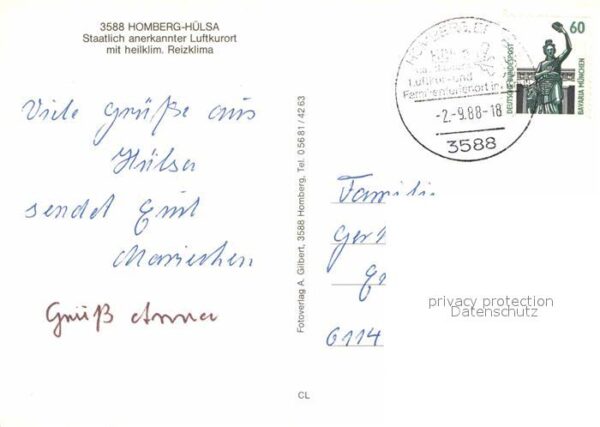 3588 HOMBERG-HÜLSA
Staatlich anerkannter Luftkurort
mit heilklim. Reizklima
Viele Grüße aus
Hülsa
sendet Euch
Mariechen
Gruß Anna
Fotoverlag A. Gilbert, 3588 Homberg, Tel. 05681/4263
CL
HOMBERG, EF
Luftkur- und
Familienferienort in
-2.-9.88-18
3588
60
DEUTSCHE BUNDESPOST
BAVARIA MÜNCHEN
Familie
Ger
6114
privacy protection
Datenschutz